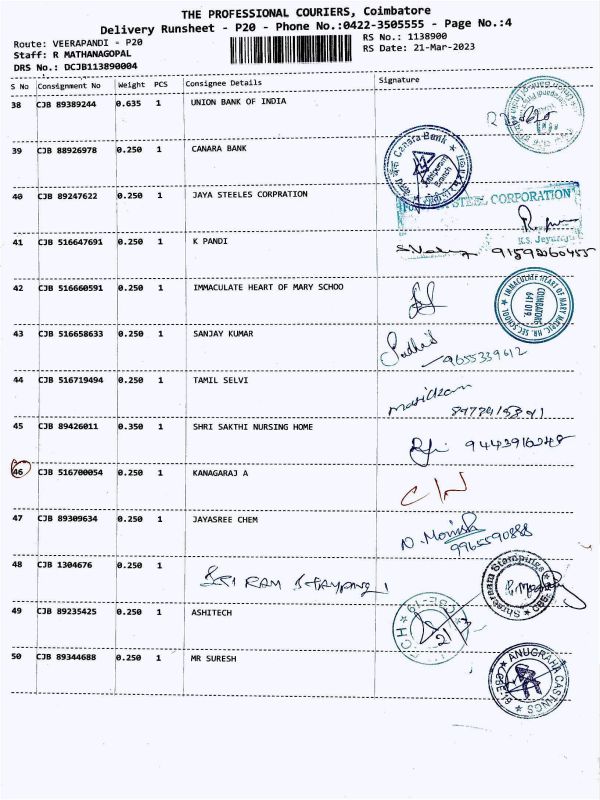 THE PROFESSIONAL COURIERS, Coimbatore
Delivery Runsheet - P20 - Phone No.:0422-3505555 - Page No.:4
Route: VEERAPANDI - P20
RS No.: 1138900
Staff: R MATHANAGOPAL
RS Date: 21-Mar-2023
DRS No.: DCJB113890004
S No Consignment No Weight PCS Consignee Details Signature
38 CJB 89389244 0.635 1 UNION BANK OF INDIA
39 CJB 88926978 0.250 1 CANARA BANK
Canara Bank
Branch
40 CJB 89247622 0.250 1 JAYA STEELES CORPRATION
STEEL CORPORATION
41 CJB 516647691 0.250 1 K PANDI
42 CJB 516660591 0.250 1 IMMACULATE HEART OF MARY SCHOO
IMMACULATE HEART OF MARY MATRIC. HR. SEC SCHOOL
COIMBATORE
641 019.
43 CJB 516658633 0.250 1 SANJAY KUMAR
9655339612
44 CJB 516719494 0.250 1 TAMIL SELVI
45 CJB 89426011 0.350 1 SHRI SAKTHI NURSING HOME
46 CJB 516700054 0.250 1 KANAGARAJ A
47 CJB 89309634 0.250 1 JAYASREE CHEM
9965590888
48 CJB 1304676 0.250 1
SRI RAM
Shreeraam Stampings
49 CJB 89235425 0.250 1 ASHITECH
CBE-19
50 CJB 89344688 0.250 1 MR SURESH
ANUGRAHA CASTINGS
CBE-19